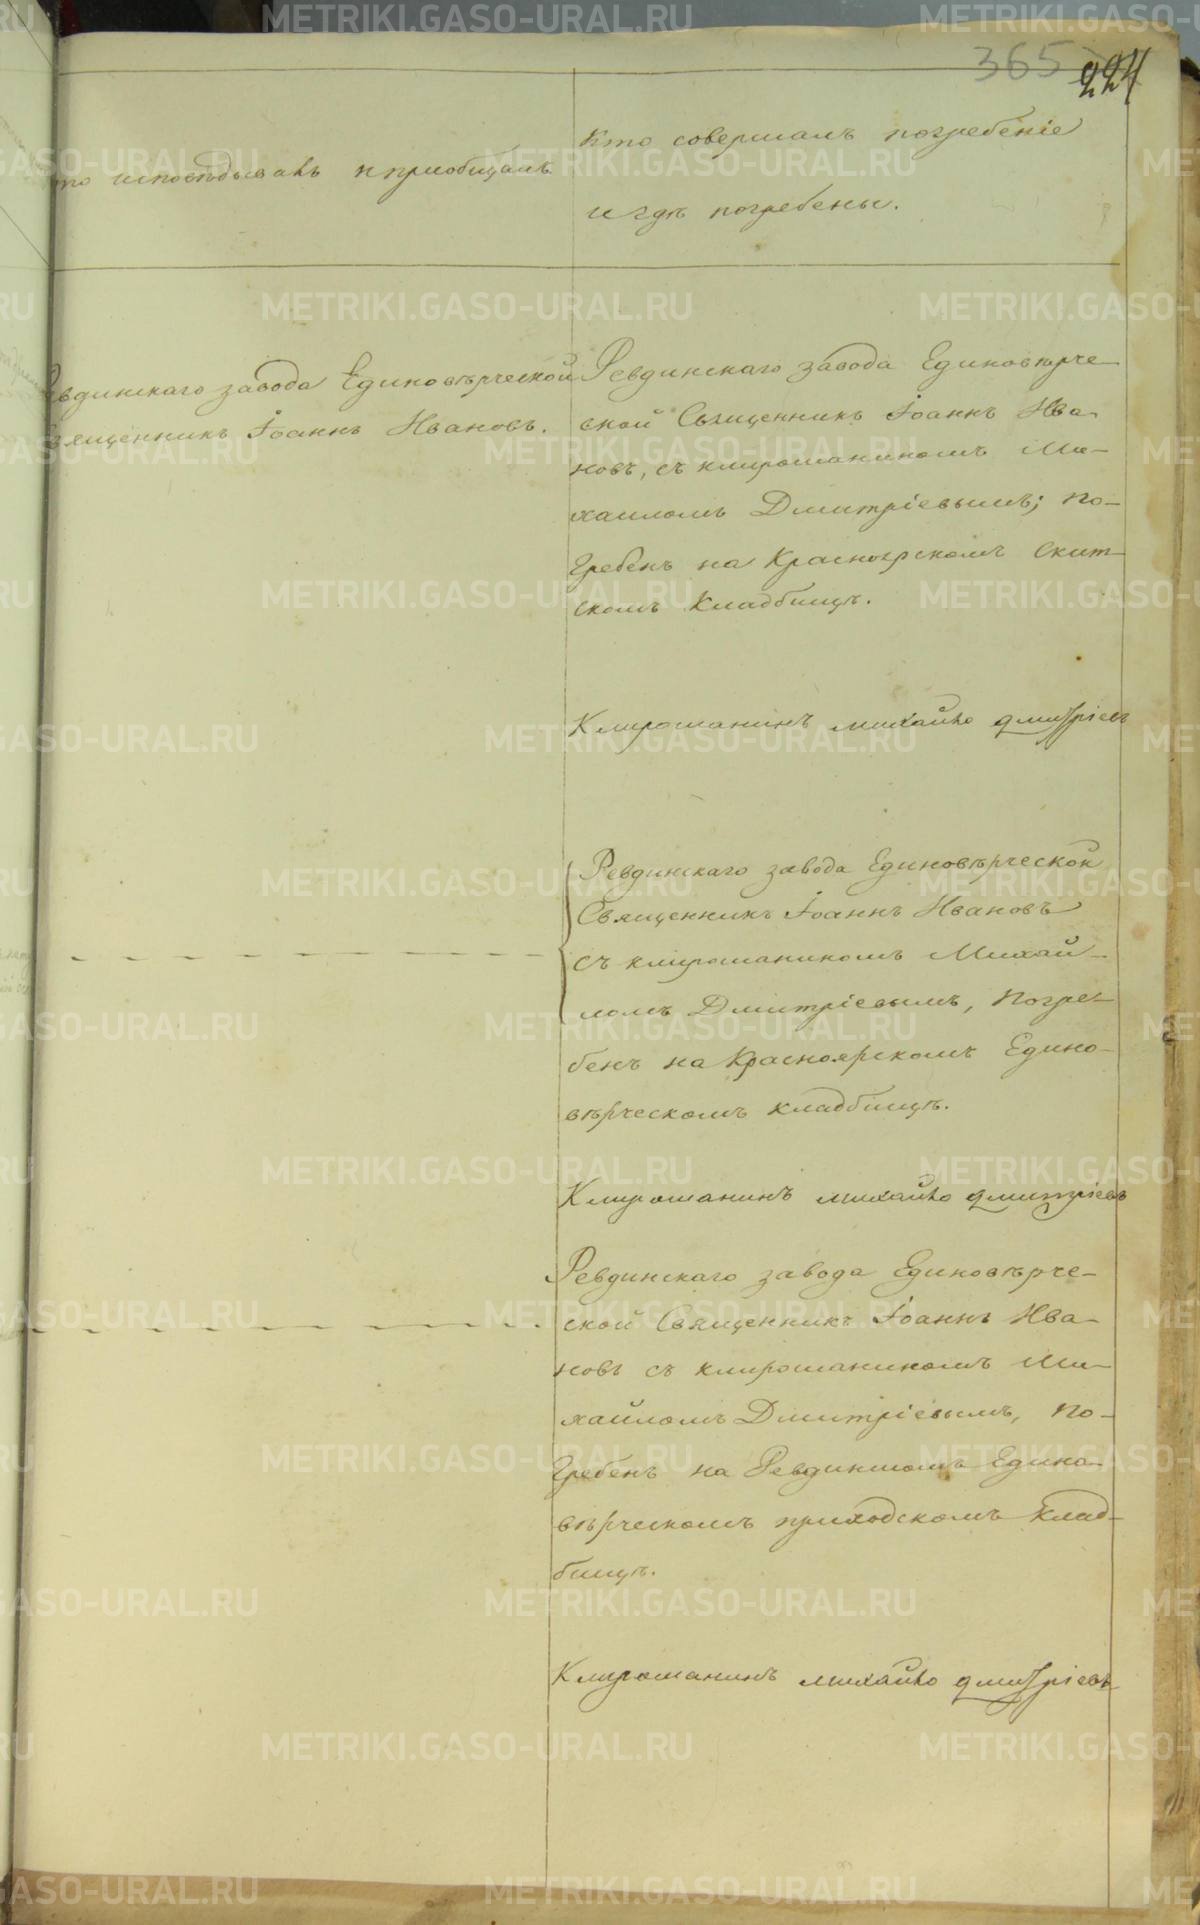 365
224
Кто исповѣдывалъ и приобщалъ
Кто совершалъ погребеніе
и гдѣ погребены.
Ревдинскаго завода Единовѣрческой
Священникъ Іоаннъ Ивановъ.
Ревдинскаго завода Единовѣрче-
ской Священникъ Іоаннъ Ива-
новъ, съ клирошаниномъ Ми-
хаиломъ Дмитріевымъ; по-
гребенъ на Красноярскомъ Скит-
скомъ Кладбищѣ.
Клирошанинъ михайло дмитріевъ
Ревдинскаго завода Единовѣрческой
Священникъ Іоаннъ Ивановъ
съ клирошаниномъ Михай-
ломъ Дмитріевымъ, погре-
бенъ на Красноярскомъ Едино-
вѣрческомъ кладбищѣ.
Клирошанинъ михайло дмитріевъ
Ревдинскаго завода Единовѣрче-
ской Священникъ Іоаннъ Ива-
новъ съ клирошаниномъ Ми-
хайломъ Дмитріевымъ, по-
гребенъ на Ревдинскомъ Едино-
вѣрческомъ приходскомъ клад-
бищѣ.
Клирошанинъ михайло дмитріевъ
METRIKI.GASO-URAL.RU